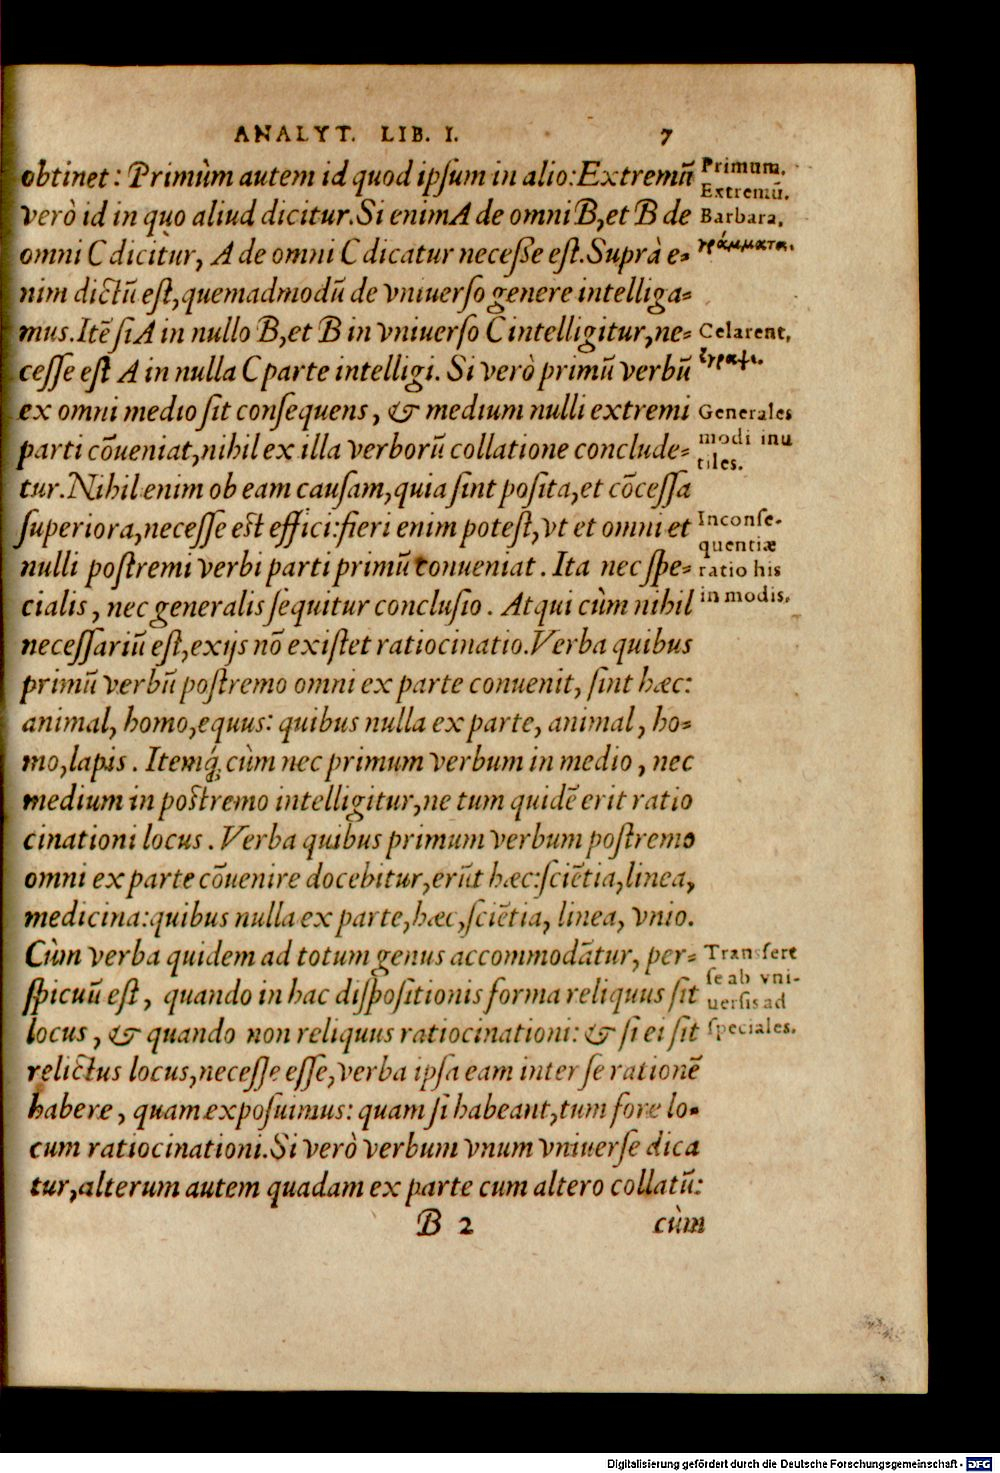 ANALYT. LIB. I. 7
obtinet: Primùm autem id quod ipſum in alio: Extremū
verò id in quo aliud dicitur. Si enim A de omni B, et B de
omni C dicitur, A de omni C dicatur neceſſe eſt. Suprà e-
nim dictū eſt, quemadmodū de vniuerſo genere intelliga-
mus. Itē ſi A in nullo B, et B in vniuerſo C intelligitur, ne-
ceſſe eſt A in nulla C parte intelligi. Si verò primū verbū
ex omni medio ſit conſequens, & medium nulli extremi
parti cōueniat, nihil ex illa verborū collatione conclude-
tur. Nihil enim ob eam cauſam, quia ſint poſita, et cōceſſa
ſuperiora, neceſſe eſt effici: fieri enim poteſt, vt et omni et
nulli poſtremi verbi parti primū conueniat. Ita nec ſpe-
cialis, nec generalis ſequitur concluſio. Atqui cùm nihil
neceſſariū eſt, ex ijs nō exiſtet ratiocinatio. Verba quibus
primū verbū poſtremo omni ex parte conuenit, ſint hæc:
animal, homo, equus: quibus nulla ex parte, animal, ho-
mo, lapis. Itemq́; cùm nec primum verbum in medio, nec
medium in poſtremo intelligitur, ne tum quidē erit ratio
cinationi locus. Verba quibus primum verbum poſtremo
omni ex parte cōuenire docebitur, erūt hæc: ſciētia, linea,
medicina: quibus nulla ex parte, hæc, ſciētia, linea, vnio.
Cùm verba quidem ad totum genus accommodātur, per-
ſpicuū eſt, quando in hac diſpoſitionis forma reliquus ſit
locus, & quando non reliquus ratiocinationi: & ſi ei ſit
relictus locus, neceſſe eſſe, verba ipſa eam inter ſe rationē
habere, quam expoſuimus: quam ſi habeant, tum fore lo-
cum ratiocinationi. Si verò verbum vnum vniuerſe dica
tur, alterum autem quadam ex parte cum altero collatū:
B 2 cùm
Primum.
Extremū.
Barbara,
γράμματα.
Celarent,
ἔγραψε.
Generales
modi inu
tiles.
Inconſe-
quentiæ
ratio his
in modis.
Transfert
ſe ab vni-
uerſis ad
ſpeciales.
Digitalisierung gefördert durch die Deutsche Forschungsgemeinschaft - DFG